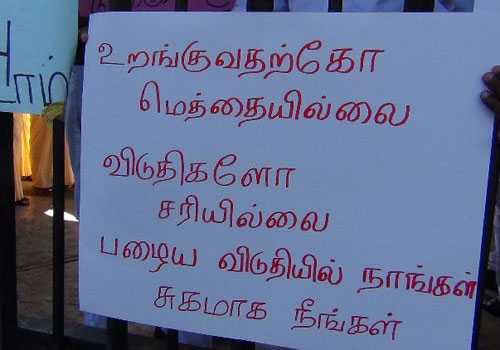 உறங்குவதற்கோ
மெத்தையில்லை
விடுதிகளோ
சரியில்லை
பழைய விடுதியில் நாங்கள்
சுகமாக நீங்கள்